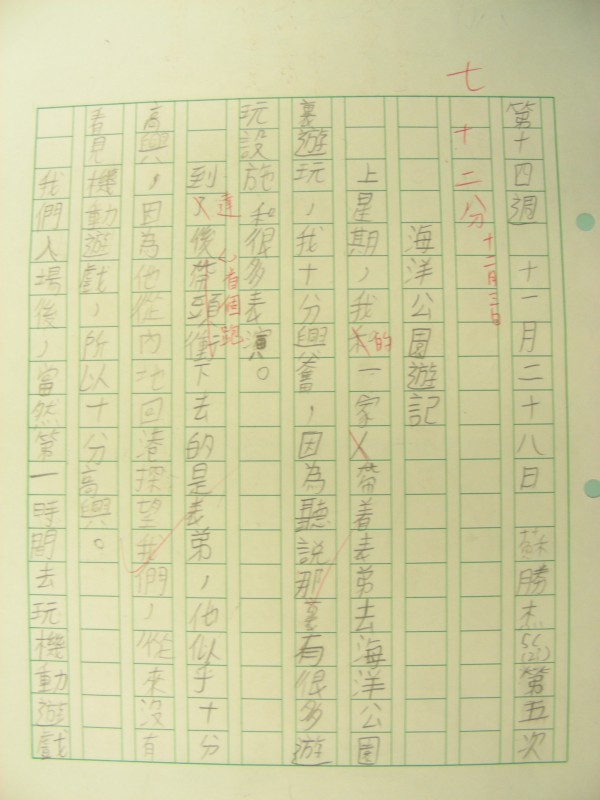 七
第十四週 十一月二十八日 蘇勝杰 5C (21) 第五次
十二分 十二月三日
海洋公園遊記
上星期，我和的一家人帶着表弟去海洋公園
裏遊玩，我十分興奮，因為聽說那裏有很多遊
玩設施和很多表演。
到達又後帶頭衝有個跑下去的是表弟，他似乎十分
高興，因為他從內地回港探望我們，從來沒有
看見機動遊戲，所以十分高興。
我們入場後，當然第一時間去玩機動遊戲